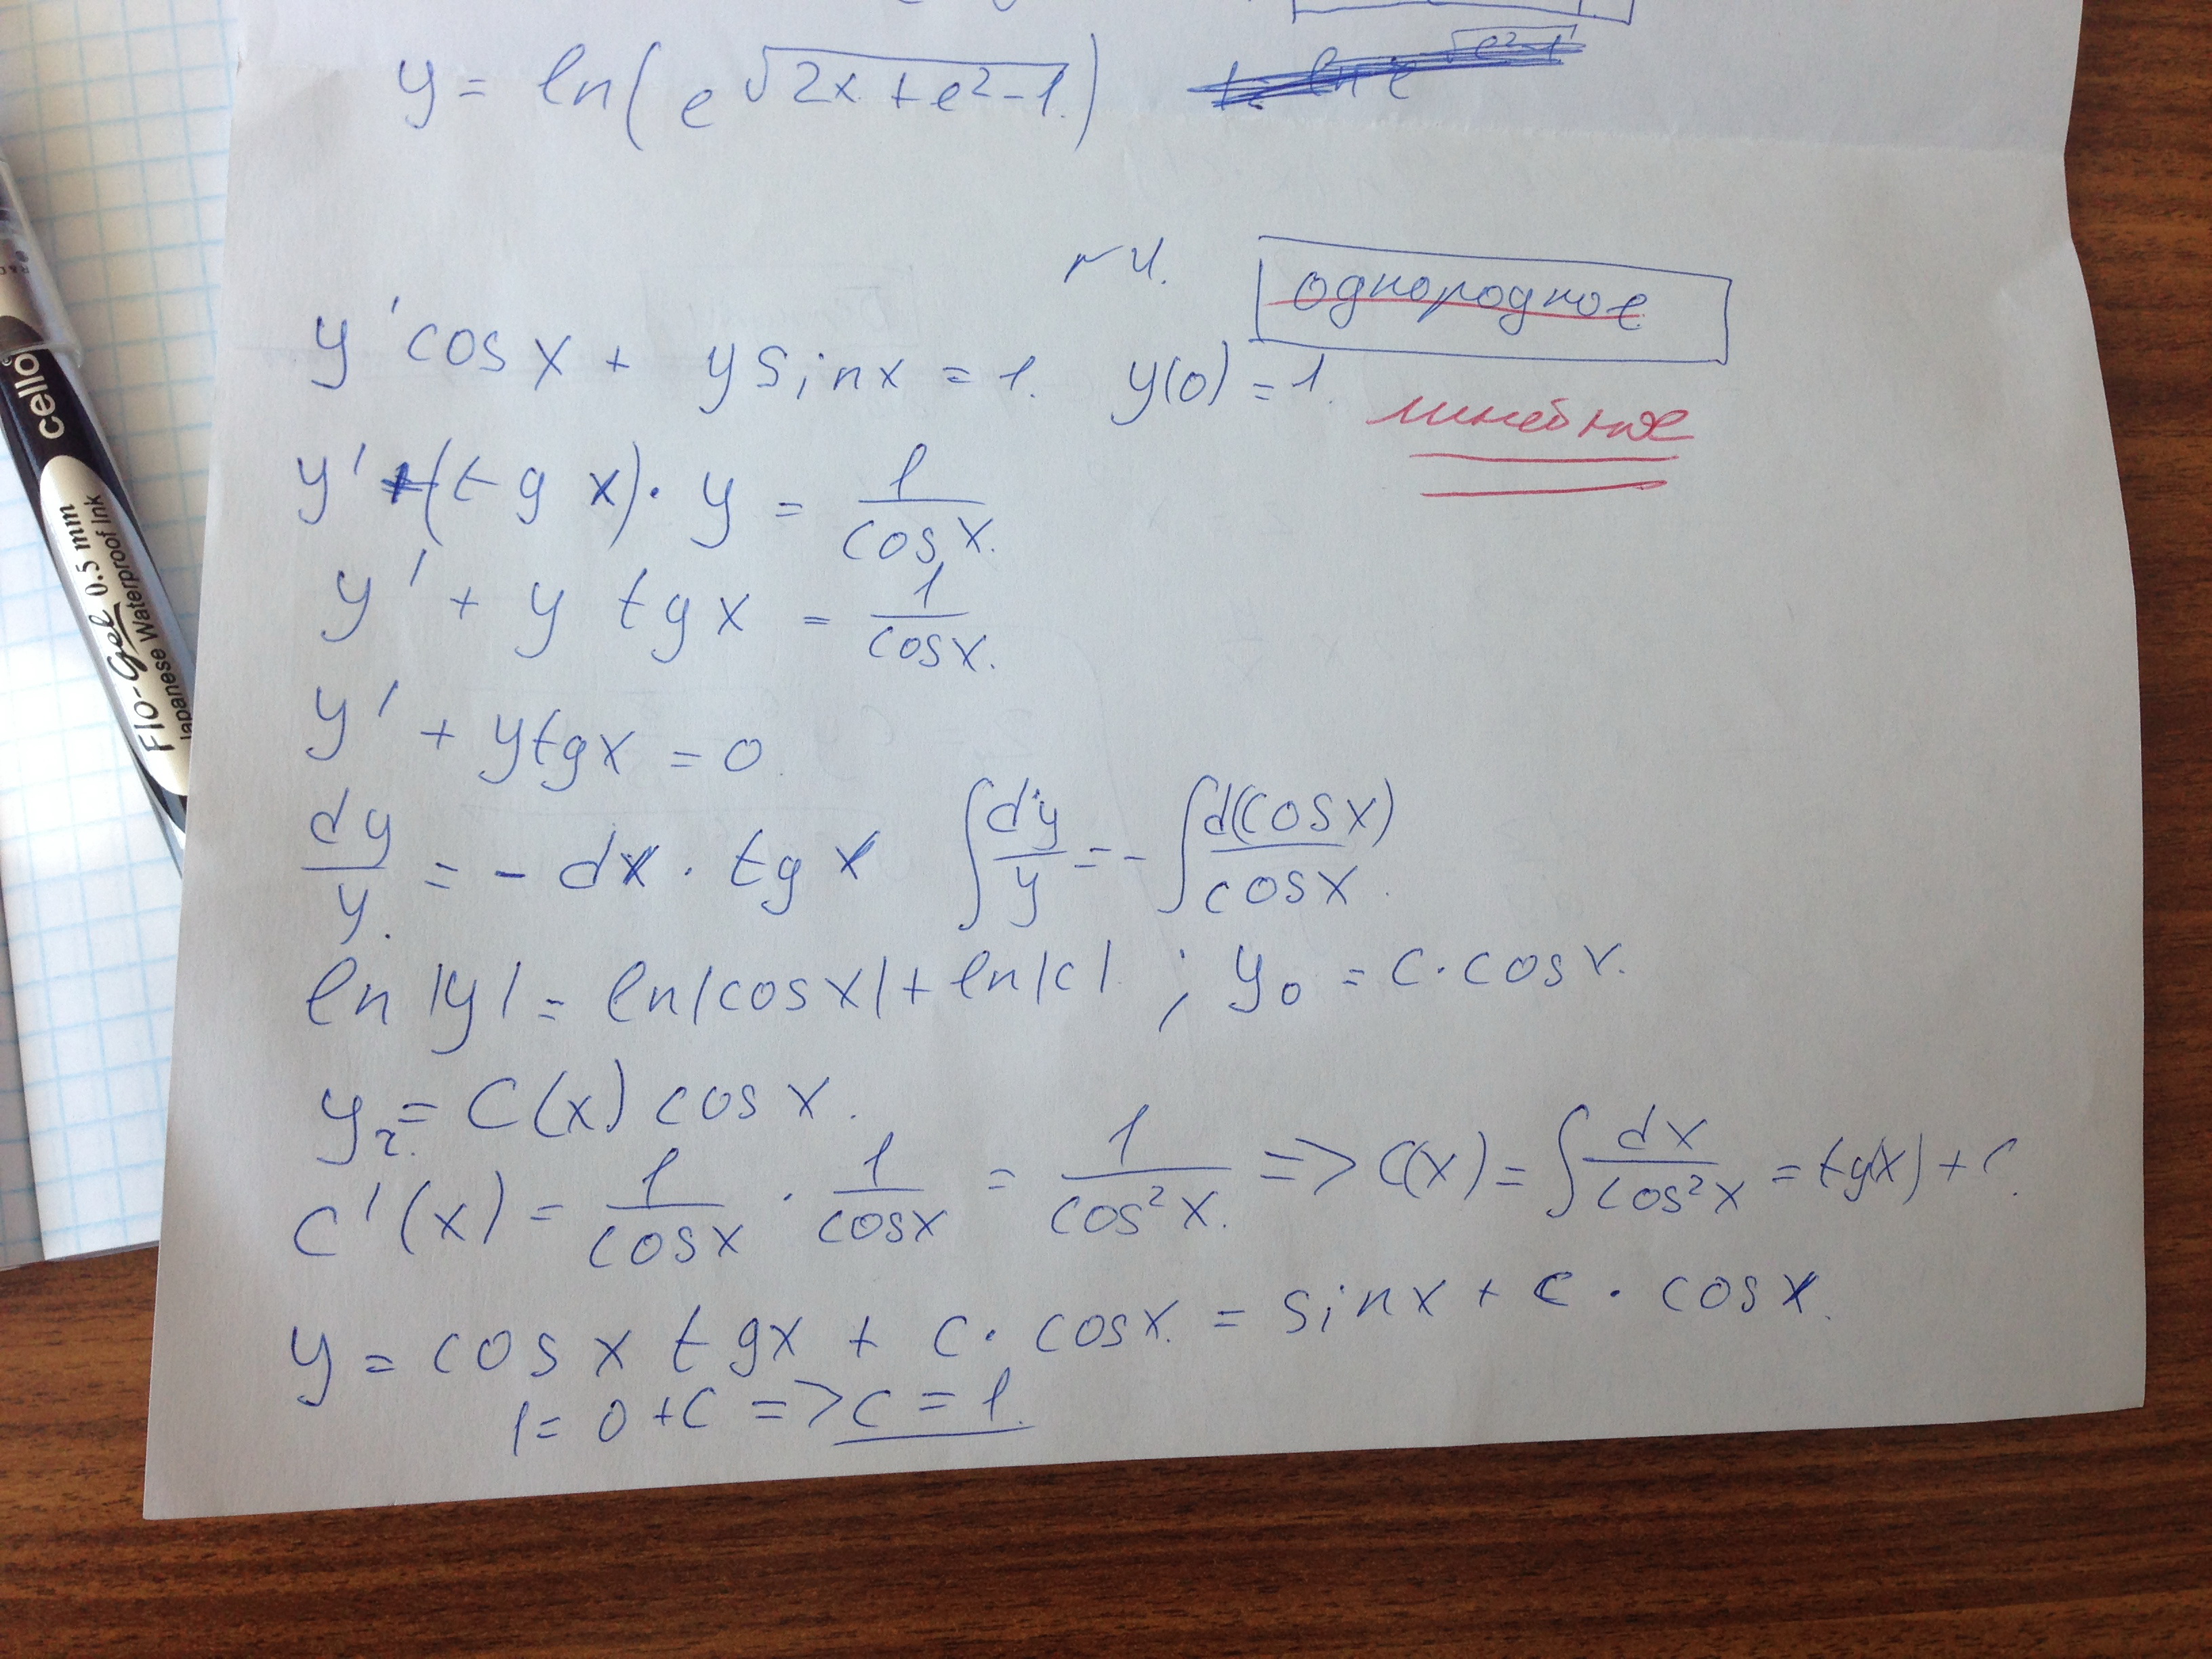 y = ln(e√(2x + e² - 1))
№4. однородное
y' cos x + y sin x = 1. y(0) = 1.
линейное
y' + (tg x) · y = 1/cos x.
y' + y tg x = 1/cos x.
y' + y tg x = 0.
dy/y = - dx · tg x ∫ dy/y = - ∫ d(cos x)/cos x.
ln |y| = ln |cos x| + ln |c| ; y₀ = c · cos x.
y₂ = C(x) cos x.
c'(x) = 1/cos x · 1/cos x = 1/cos² x. => C(x) = ∫ dx/cos² x = tg(x) + c.
y = cos x tg x + c · cos x. = sin x + c · cos x.
1 = 0 + C => c = 1.
cello
Flo-Gel 0.5 mm
Japanese Waterproof Ink